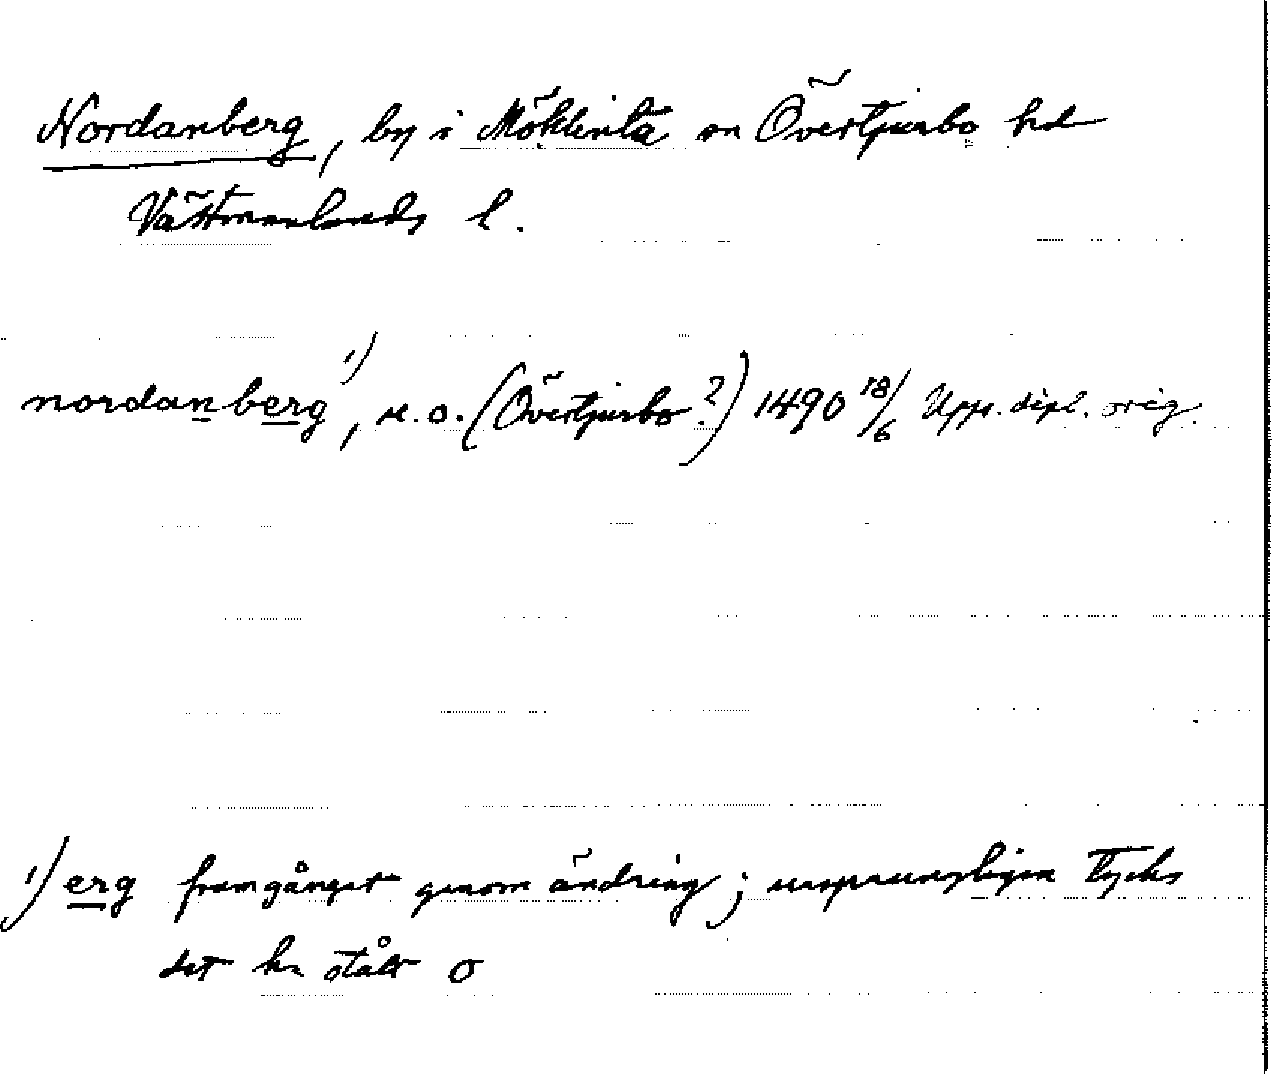 Nordanberg, by i Möklinta sn Övertjurbo hd
Västmanlands l.
nordanberg 1), u. o. (Övertjurbo?) 1490 18/6 Upps. dipl. orig.
1) erg framgånget genom ändring; ursprungligen tycks
det ha stått o